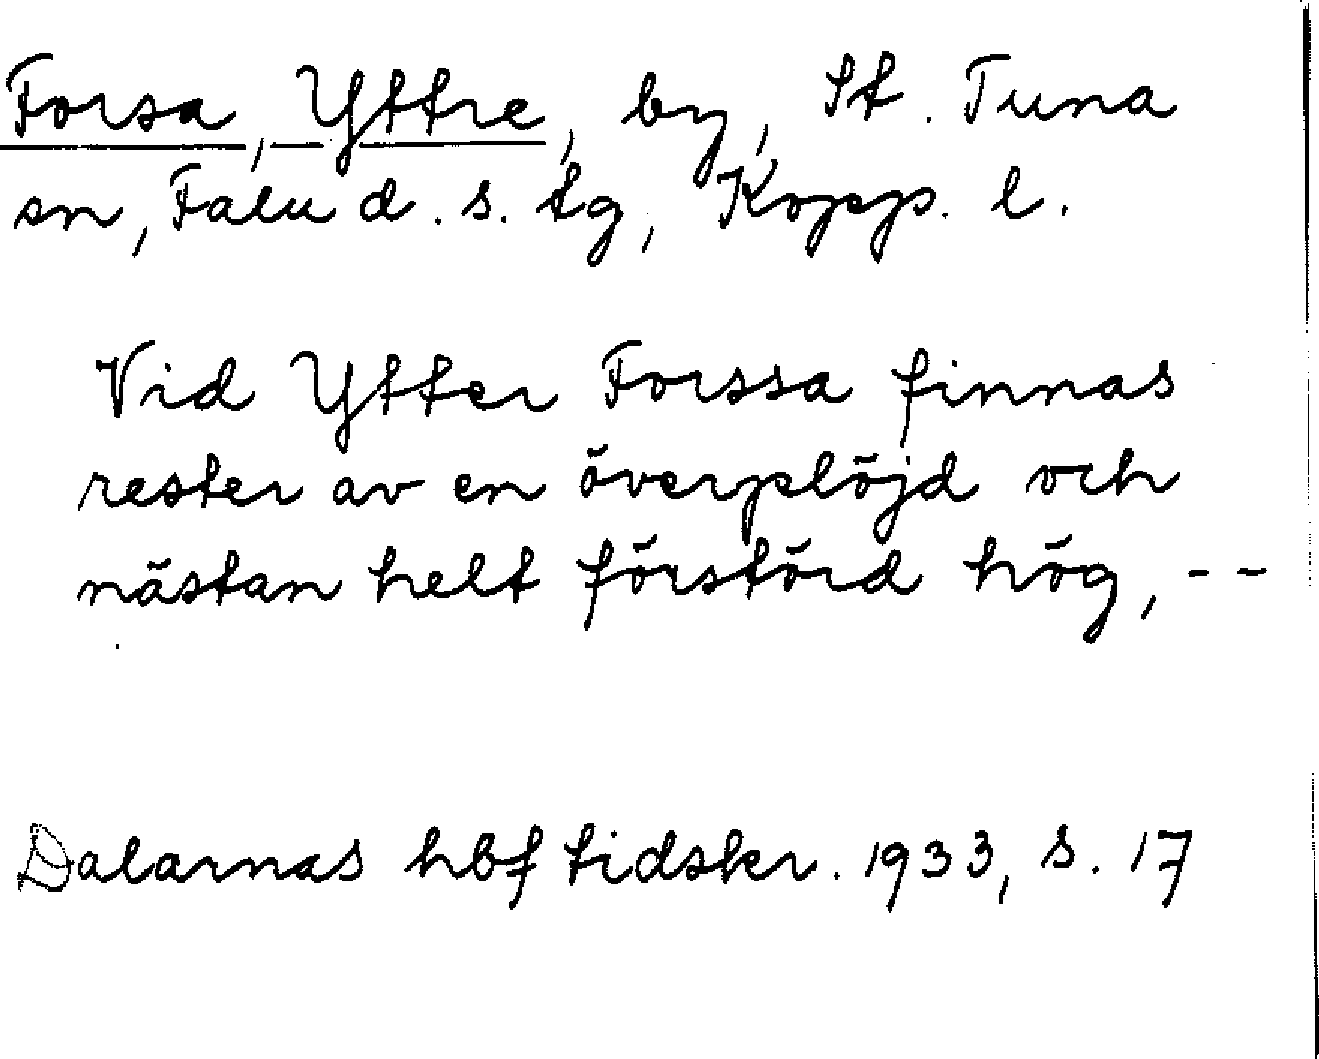 Forsa, Yttre, by, St. Tuna
sn, Falu d. s. tg, Kopp. l.
Vid Ytter Forssa finnas
rester av en överplöjd och
nästan helt förstörd hög, --
Dalarnas hbf tidskr. 1933, s. 17